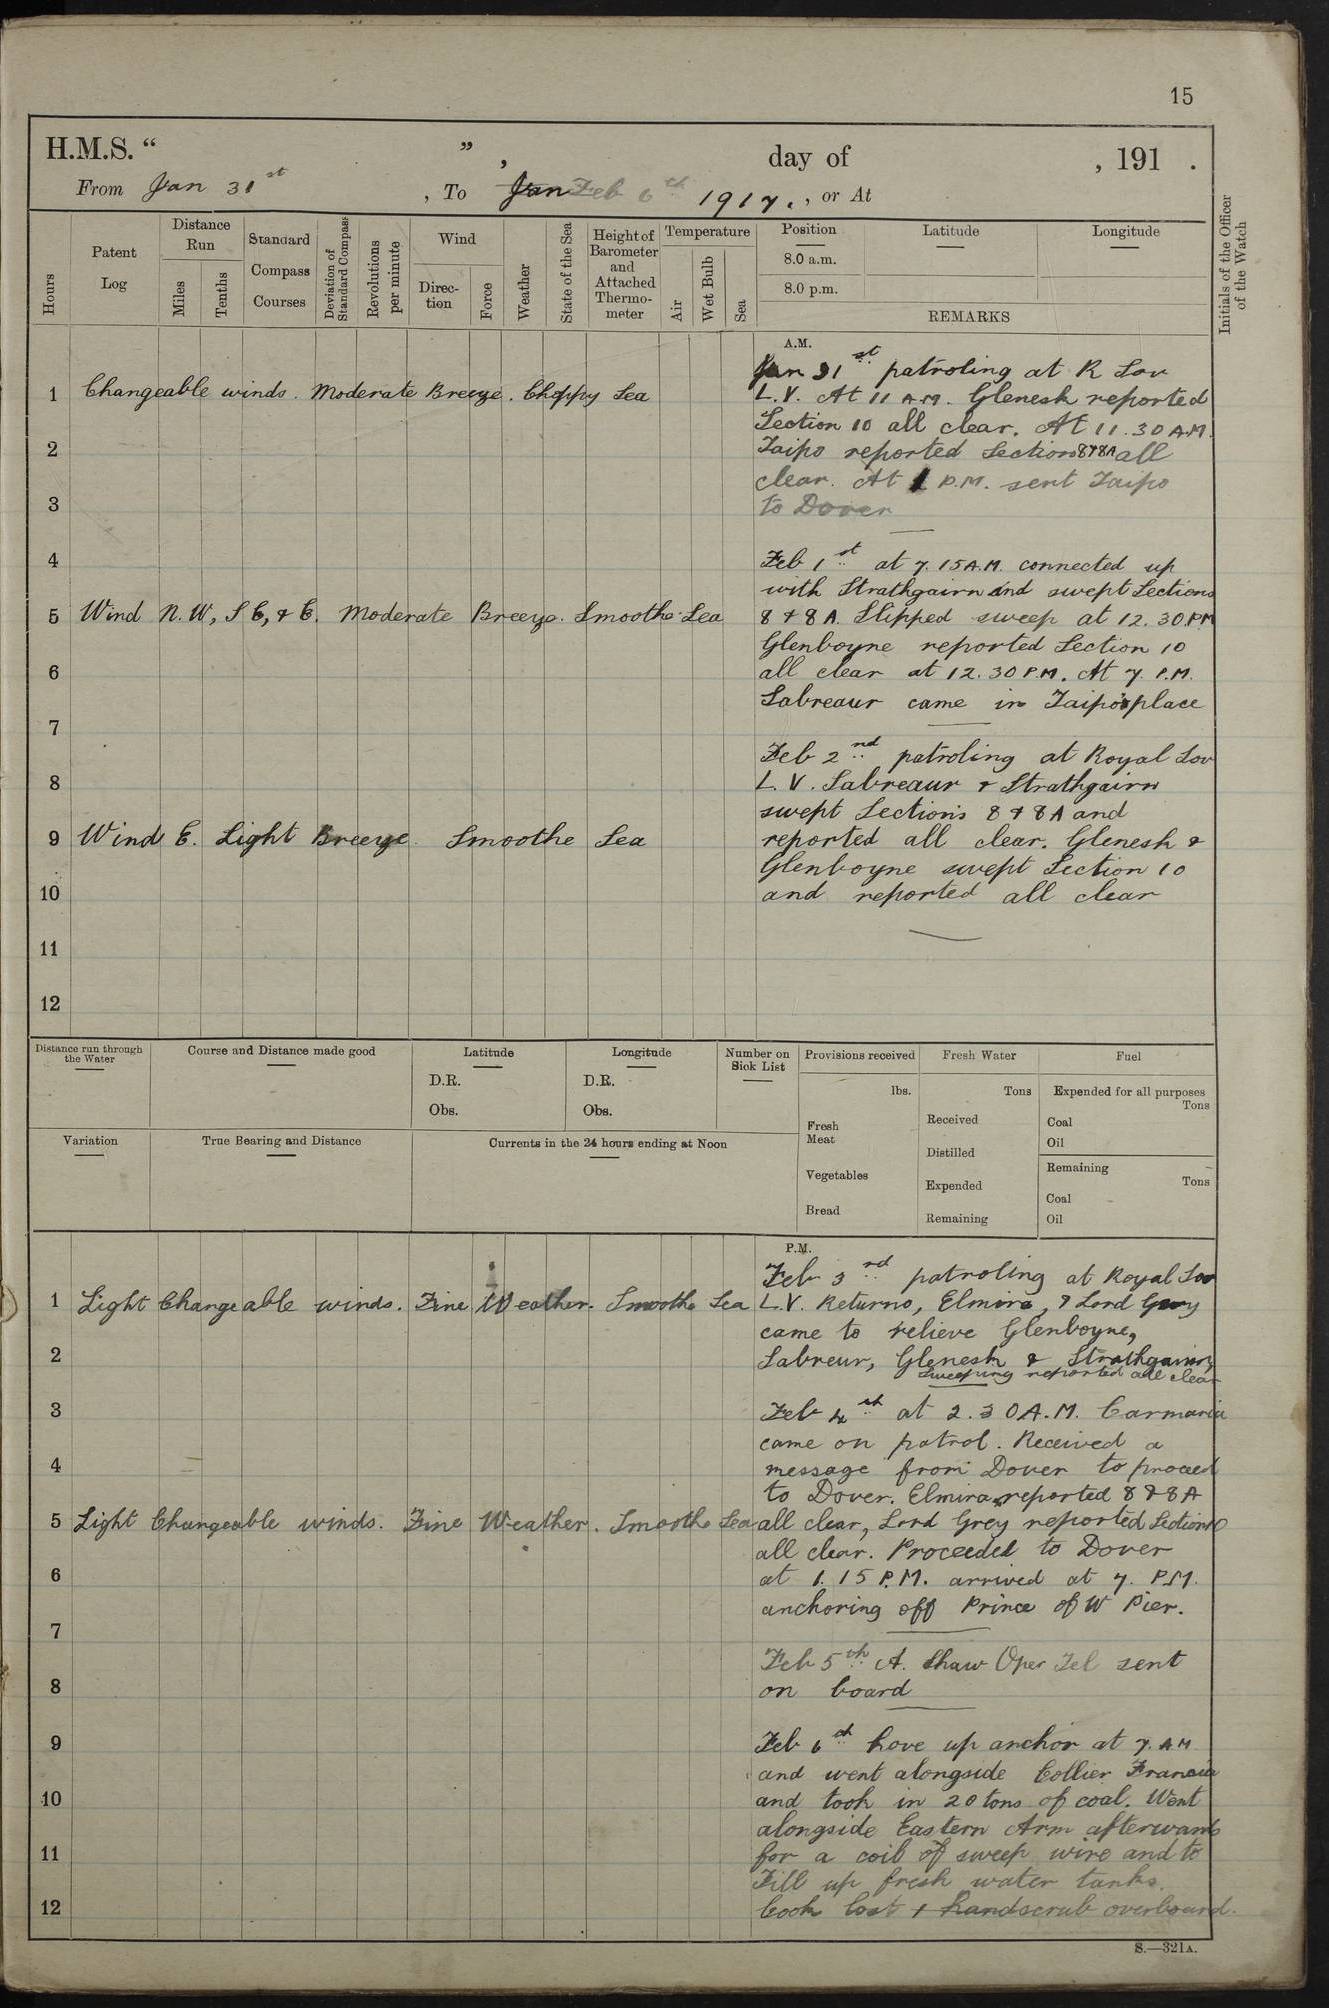 15
H.M.S. “ ” , day of , 191 .
From Jan 31st , To Jan Feb 6th 1917. , or At
Hours
Patent Log
Distance Run
Miles
Tenths
Standard Compass Courses
Deviation of Standard Compass
Revolutions per minute
Wind
Direction
Force
Weather
State of the Sea
Height of Barometer and Attached Thermometer
Temperature
Air
Wet Bulb
Sea
Position
8.0 a.m.
8.0 p.m.
Latitude
Longitude
REMARKS
Initials of the Officer of the Watch
A.M.
Jan 31st patroling at R Sov
1 Changeable winds. Moderate Breeze. Choppy Sea
L.V. At 11 A.M. Glenesk reported
Section 10 all clear. At 11.30 A.M.
2
Taipo reported Section 8 & 8A all
clear. At 1 P.M. sent Taipo
3
to Dover
4
Feb 1st at 7.15 A.M. connected up
with Strathgairn and swept Sections
5 Wind N.W, S E, & E. Moderate Breeze. Smoothe Sea
8 & 8 A. Slipped sweep at 12.30 PM
Glenboyne reported Section 10
6
all clear at 12.30 P.M. At 7. P.M.
Sabreaur came in Taipo's place
7
Feb 2nd patroling at Royal Sov
8
L.V. Sabreaur & Strathgairn
swept Section's 8 & 8 A and
9 Wind E. Light Breeze. Smoothe Sea
reported all clear. Glenesk &
Glenboyne swept Section 10
10
and reported all clear
11
12
Distance run through the Water
Course and Distance made good
Latitude
D.R.
Obs.
Longitude
D.R.
Obs.
Number on Sick List
Provisions received
lbs.
Fresh Meat
Vegetables
Bread
Fresh Water
Tons
Received
Distilled
Expended
Remaining
Fuel
Expended for all purposes
Tons
Coal
Oil
Remaining
Tons
Coal
Oil
Variation
True Bearing and Distance
Currents in the 24 hours ending at Noon
P.M.
Feb 3rd patroling at Royal Sov
1 Light Changeable winds. Fine Weather. Smoothe Sea
L.V. Returno, Elmira, & Lord Grey
came to relieve Glenboyne,
2
Sabreur, Glenesk & Strathgairn,
sweeping reported all clear
3
Feb 4th at 2.30 A.M. Carmania
came on patrol. Received a
4
message from Dover to proceed
to Dover. Elmira reported 8 & 8 A
5 Light Changeable winds. Fine Weather. Smoothe Sea
all clear, Lord Grey reported Section 10
all clear. Proceeded to Dover
6
at 1.15 P.M. arrived at 7. P.M.
anchoring off Prince of W Pier.
7
Feb 5th A. Shaw Oper Tel sent
8
on board
9
Feb 6th hove up anchor at 7. A M
and went alongside Collier Francis
10
and took in 20 tons of coal. Went
alongside Eastern Arm afterwards
11
for a coil of sweep wire and to
Fill up fresh water tanks.
12
Cook lost 1 handscrub overboard.
S.—321A.